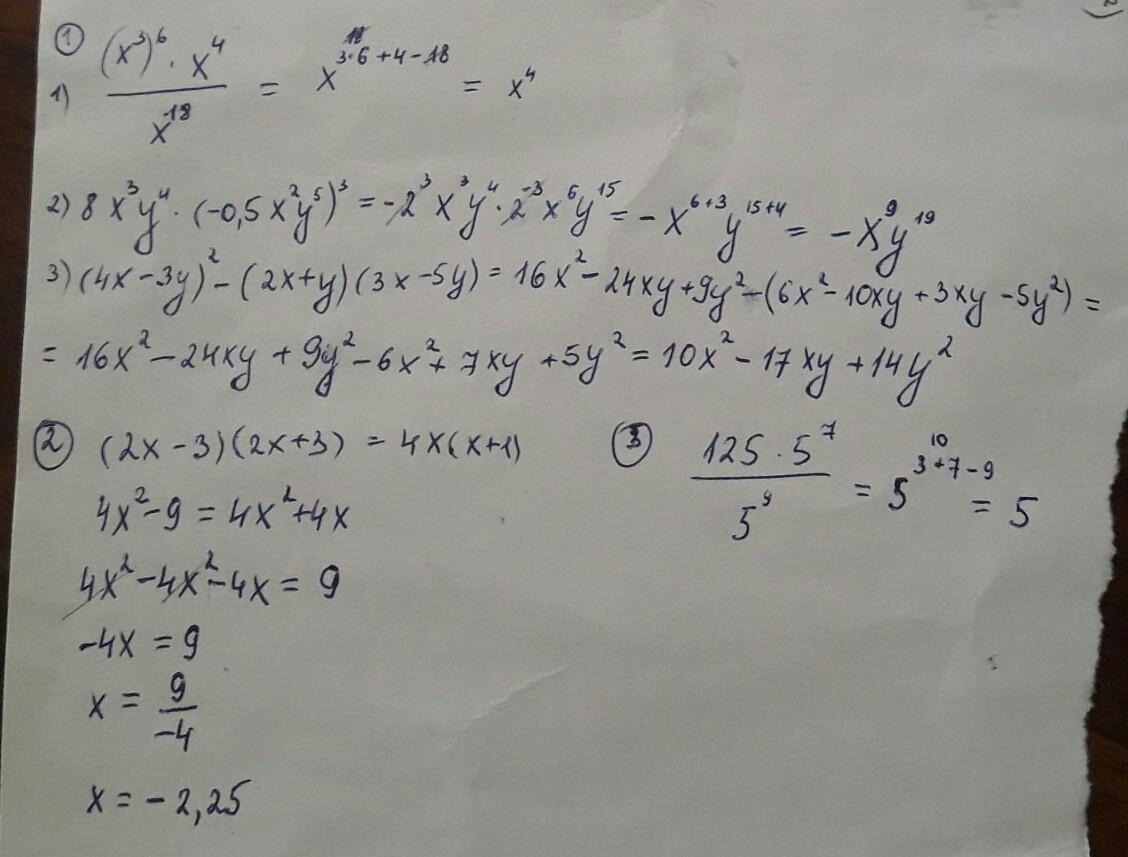 ①
1) (x³)⁶ · x⁴ / x¹⁸ = x³·⁶⁺⁴⁻¹⁸ = x⁴
18
2) 8x³y⁴ · (-0,5x²y⁵)³ = -2³x³y⁴ · 2⁻³x⁶y¹⁵ = -x⁶⁺³y¹⁵⁺⁴ = -x⁹y¹⁹
3) (4x-3y)² - (2x+y)(3x-5y) = 16x² - 24xy + 9y² - (6x² - 10xy + 3xy - 5y²) =
= 16x² - 24xy + 9y² - 6x² + 7xy + 5y² = 10x² - 17xy + 14y²
② (2x-3)(2x+3) = 4x(x+1)
4x² - 9 = 4x² + 4x
4x² - 4x² - 4x = 9
-4x = 9
x = 9/-4
x = -2,25
③ 125 · 5⁷ / 5⁹ = 5³⁺⁷⁻⁹ = 5
10